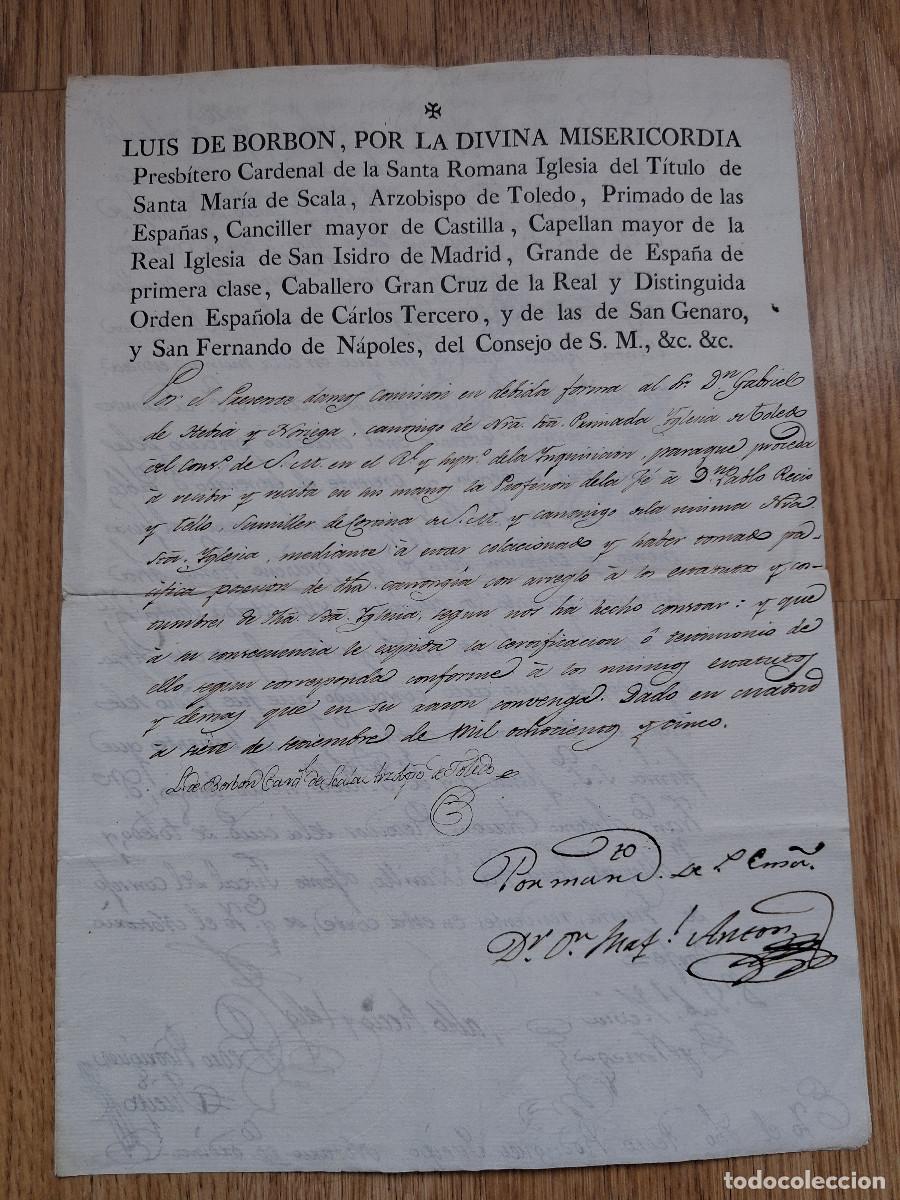 ✠
LUIS DE BORBON, POR LA DIVINA MISERICORDIA
Presbítero Cardenal de la Santa Romana Iglesia del Título de
Santa María de Scala, Arzobispo de Toledo, Primado de las
Españas, Canciller mayor de Castilla, Capellan mayor de la
Real Iglesia de San Isidro de Madrid, Grande de España de
primera clase, Caballero Gran Cruz de la Real y Distinguida
Orden Española de Cárlos Tercero, y de las de San Genaro,
y San Fernando de Nápoles, del Consejo de S. M., &c. &c.
Por el Presente damos comision en debida forma al Dr. Dn. Gabriel
de Hevia y Noriega, canonigo de Nrã. Stã. Primada Yglesia de Toledo
del Cons.º de S. M. en el Rl. y Supr.º de la Ynquisicion, paraque proceda
à recibir y reciba en sus manos la Profesion dela Fé à Dn. Pablo Recio
y Tello, Sumiller de Cortina de S. M. y canonigo dela misma Nrã
Stã. Yglesia, mediante à estar colacionado y haber tomado pa-
cifica posesion de dha. canongia con arreglo à los estatutos y cos-
tumbres de dha. Stã. Yglesia, segun nos há hecho constar: y que
à su consecuencia le expida la certificacion ô testimonio de
ello segun corresponda conforme à los mismos estatutos
y demas que en su razon convenga. Dado en Madrid
à siete de Noviembre de Mil ochocientos y cinco.
L. de Borbon Card.l de Scala Arzbpo de Toledo
Por mand.to de S. Emã.
Dr. Dn. Anton
todocoleccion